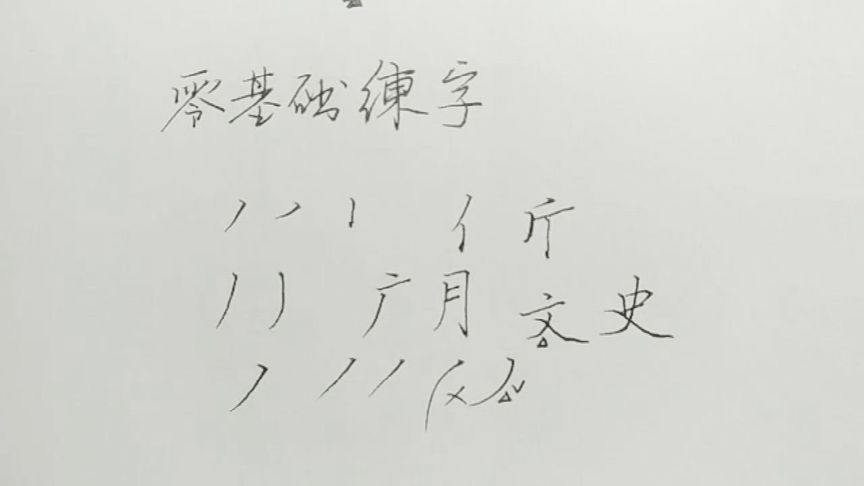 零基础練字
丿 丿 丨 亻 斤
丿 丿 广 月 文 史
丿 丿 丿